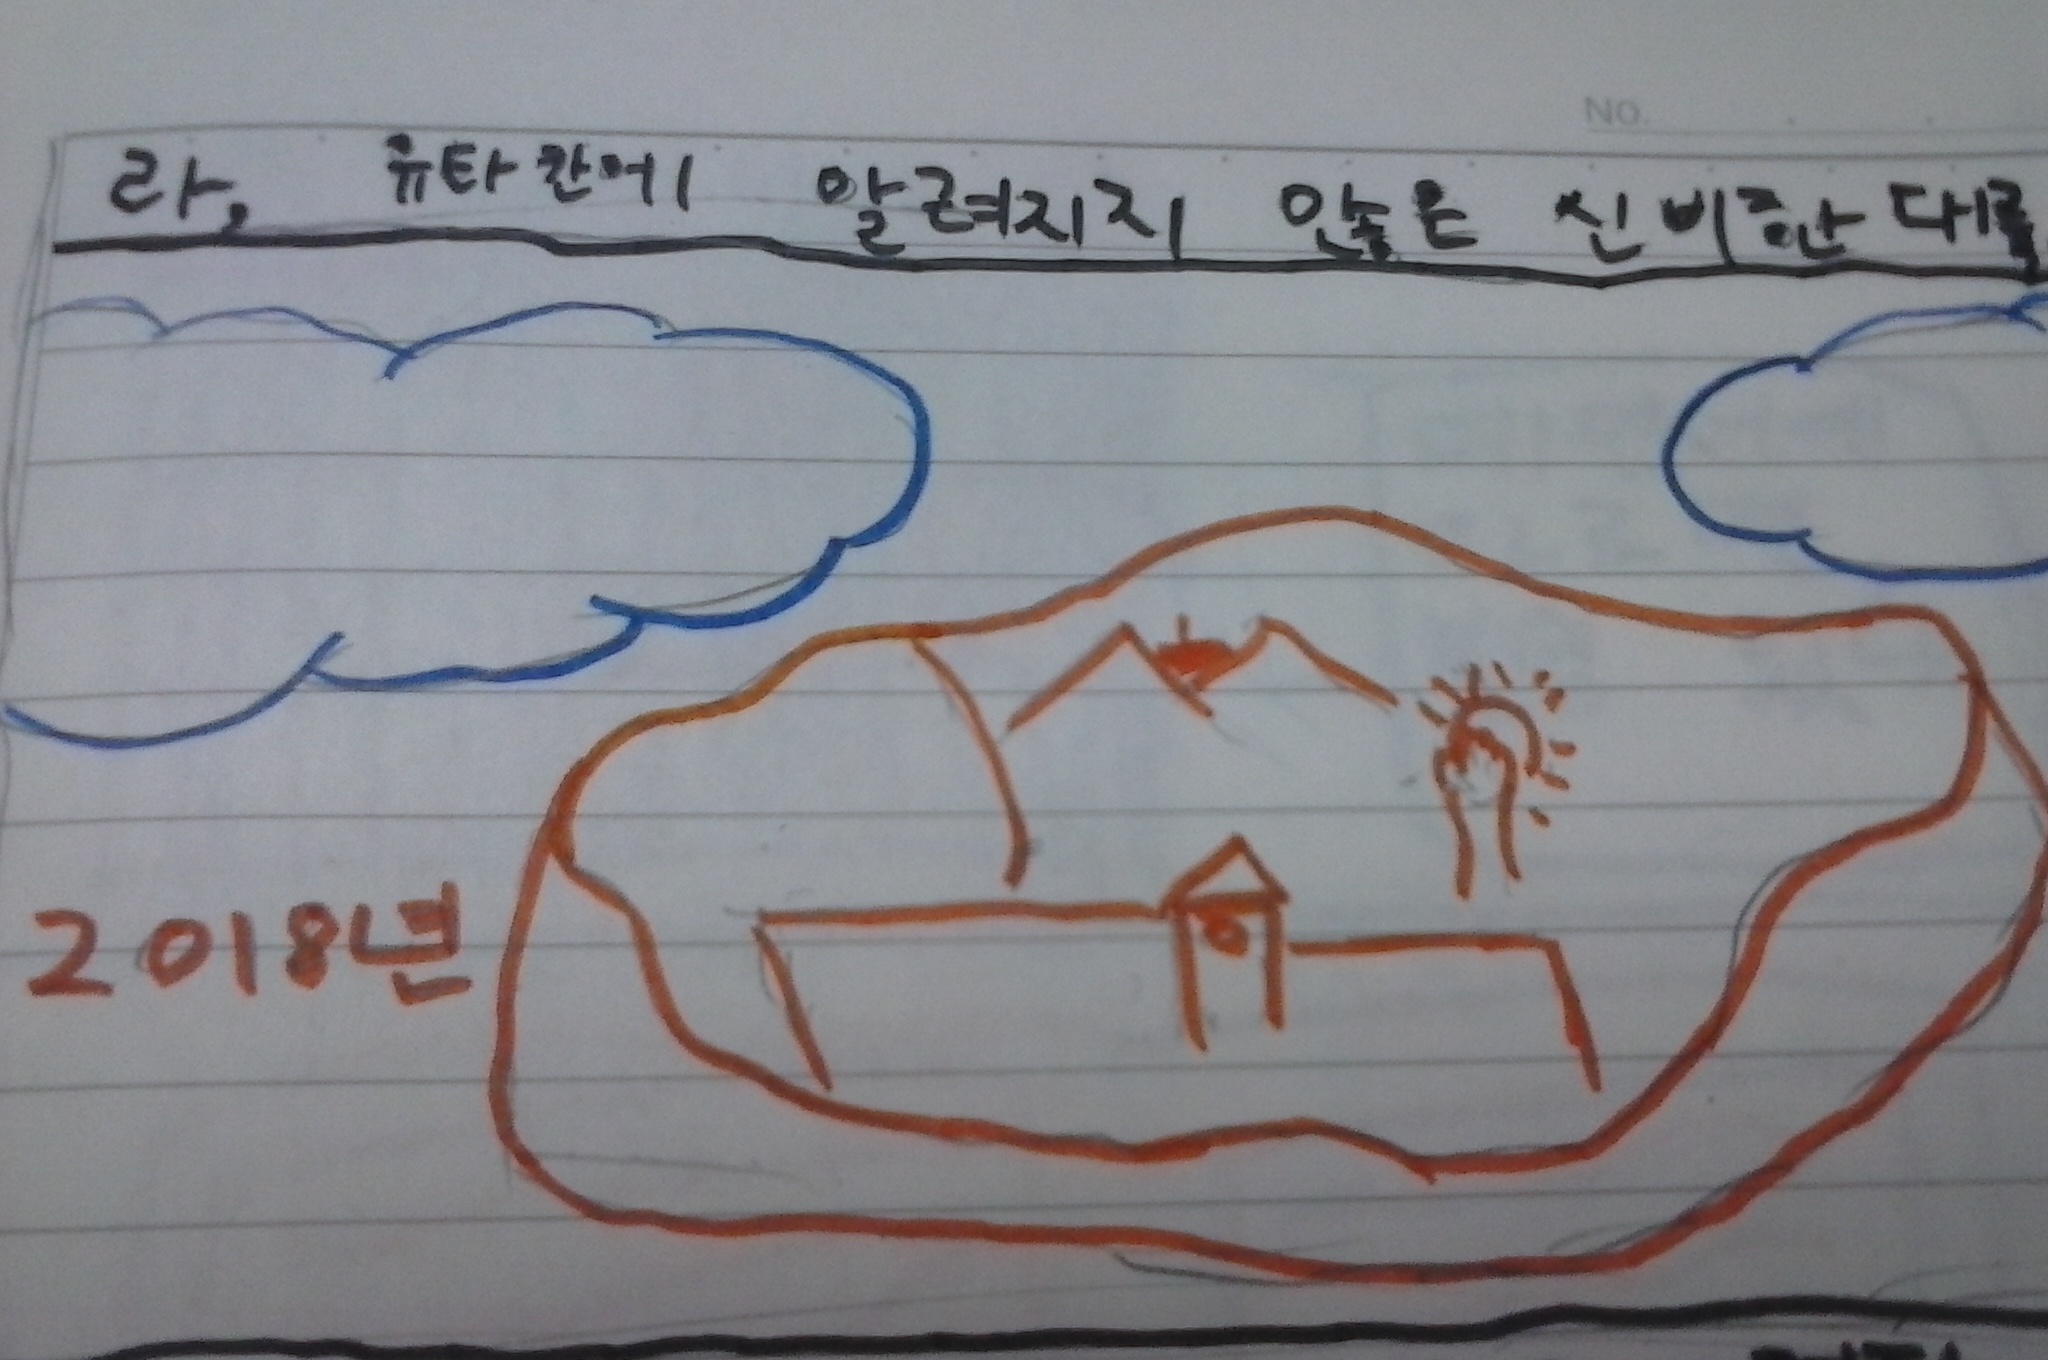 No.
라, 유타칸에 알려지지 않은 신비한 대륙
2018년